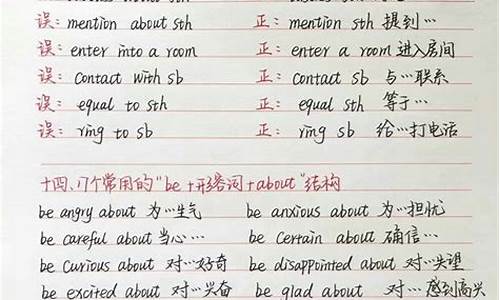 误: mention about sth 正: mention sth 提到…
误: enter into a room 正: enter a room 进入房间
误: Contact with sb 正: contact sb 与…联系
误: equal to sth 正: equal sth 等于…
误: ring to sb 正: ring sb 给…打电话
十四、17个常用的"be+形容词+about"结构
be angry about 为…生气 be anxious about 为…担忧
be careful about 当心… be certain about 确信…
be curious about 对…好奇 be disappointed about 对…失望
be excited about 对…兴奋 be glad about 对…感到高兴